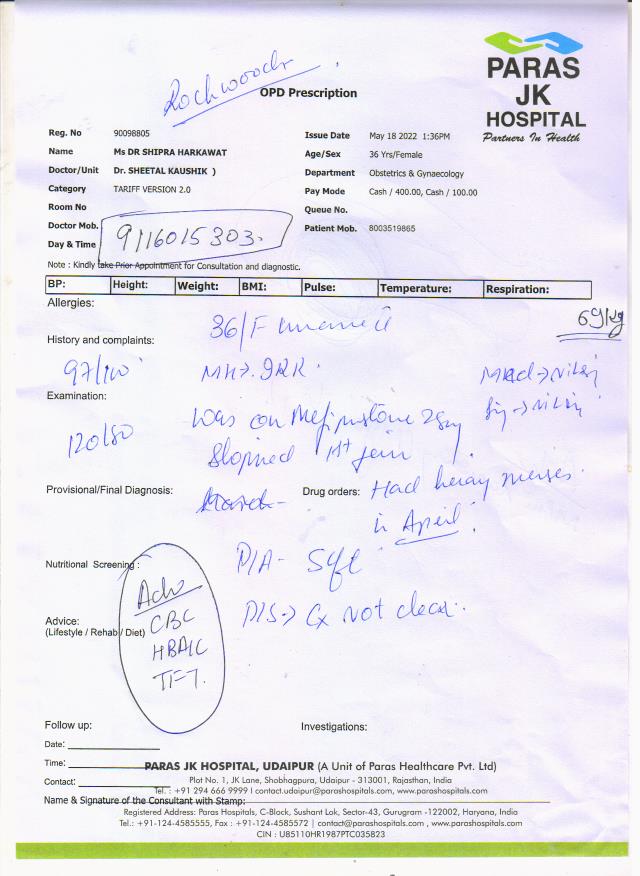 PARAS
JK
HOSPITAL
Partners In Health
Rockwoods
OPD Prescription
Reg. No 90098805
Issue Date May 18 2022 1:36PM
Name Ms DR SHIPRA HARKAWAT
Age/Sex 36 Yrs/Female
Doctor/Unit Dr. SHEETAL KAUSHIK )
Department Obstetrics & Gynaecology
Category TARIFF VERSION 2.0
Pay Mode Cash / 400.00, Cash / 100.00
Room No
Queue No.
Doctor Mob.
Patient Mob. 8003519865
9116015303.
Day & Time
Note : Kindly take Prior Appointment for Consultation and diagnostic.
BP: Height: Weight: BMI: Pulse: Temperature: Respiration:
Allergies:
69/kg
36/F
History and complaints:
97/
MH>
Examination:
120/80
Was on
1st
Provisional/Final Diagnosis:
Drug orders: Had heavy menses
in April
Nutritional Screening :
P/A - Soft
Adv
Advice:
(Lifestyle / Rehab / Diet)
CBC
P/S → Cx not clear.
HBA1C
TFT.
Follow up:
Investigations:
Date:
Time:
PARAS JK HOSPITAL, UDAIPUR (A Unit of Paras Healthcare Pvt. Ltd)
Plot No. 1, JK Lane, Shobhagpura, Udaipur - 313001, Rajasthan, India
Contact:
Tel. : +91 294 666 9999 I contact.udaipur@parashospitals.com, www.parashospitals.com
Name & Signature of the Consultant with Stamp:
Registered Address: Paras Hospitals, C-Block, Sushant Lok, Sector-43, Gurugram -122002, Haryana, India
Tel.: +91-124-4585555, Fax : +91-124-4585572 | contact@parashospitals.com , www.parashospitals.com
CIN : U85110HR1987PTC035823